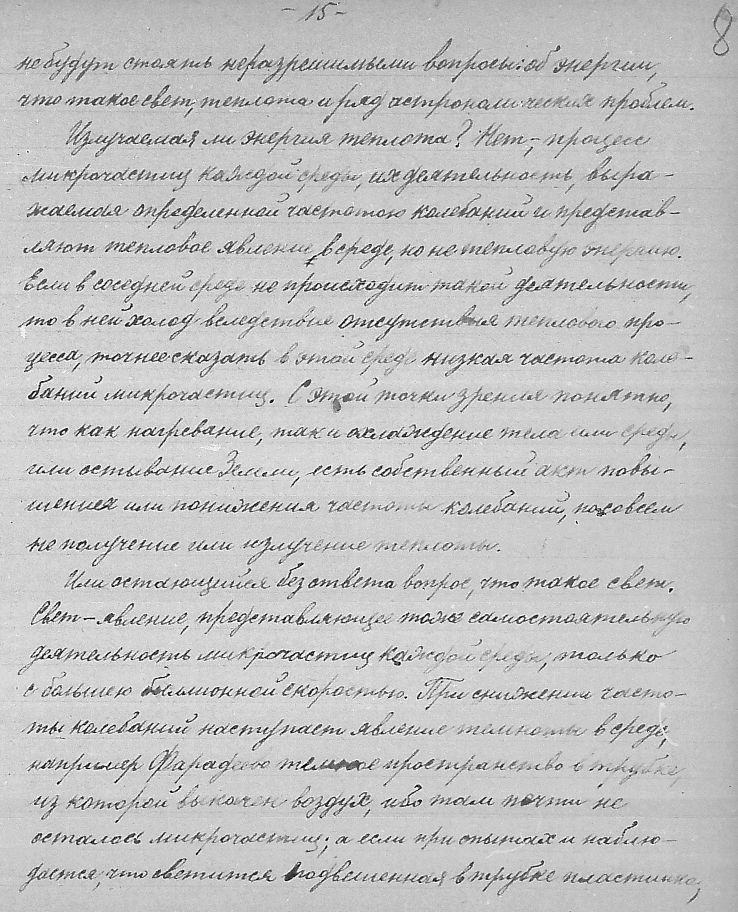 - 15 -
8
не будут стоять неразрешимыми вопросы: об энергии,
что такое свет, теплота и ряд астрономических проблем.
Излучаемая ли энергия теплота? Нет, - процесс
микрочастиц каждой среды, их деятельность, выра-
жаемая определенной частотою колебаний и представ-
ляют тепловое явление в среде, но не тепловую энергию.
Если в соседней среде не происходит такой деятельности,
то в ней холод вследствие отсутствия теплового про-
цесса, точнее сказать в этой среде низкая частота коле-
баний микрочастиц. С этой точки зрения понятно,
что как нагревание, так и охлаждение тела или среды,
или остывание Земли, есть собственный акт повы-
шения или понижения частоты колебаний, но совсем
не получение или излучение теплоты.
Или остающийся без ответа вопрос, что такое свет.
Свет - явление, представляющее тоже самостоятельную
деятельность микрочастиц каждой среды, только
с большею биллионной скоростью. При снижении часто-
ты колебаний наступает явление темноты в среде,
например Фарадеево темное пространство в трубке,
из которой выкачен воздух, ибо там почти не
осталось микрочастиц; а если при опытах и наблю-
дается, что светится подвешенная в трубке пластинка,